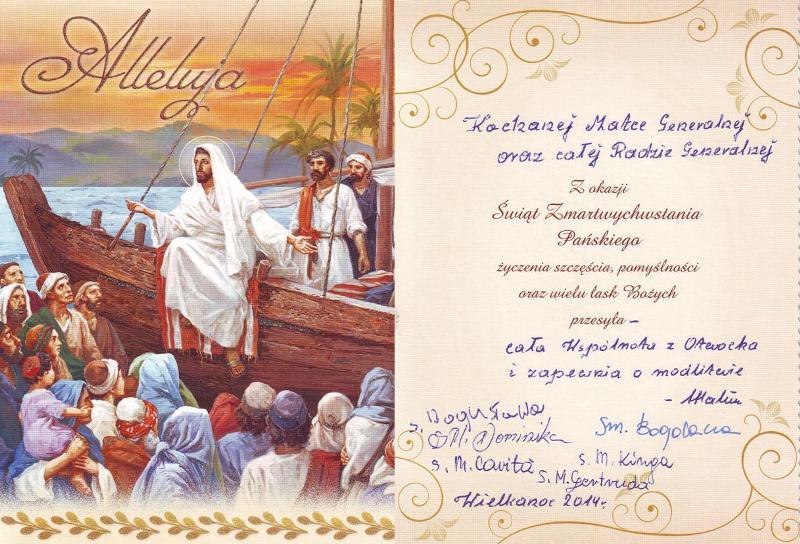 Alleluja
Kochanej Matce Generalnej
oraz całej Radzie Generalnej
Z okazji
Świąt Zmartwychwstania
Pańskiego
życzenia szczęścia, pomyślności
oraz wielu łask Bożych
przesyła –
cała Wspólnota z Otwocka
i zapewnia o modlitwie
s. Bogusława
Dominika
Sm. Bogdana
s. M. Davita
s. M. Kinga
S. M. Gertruda
Wielkanoc 2014r.